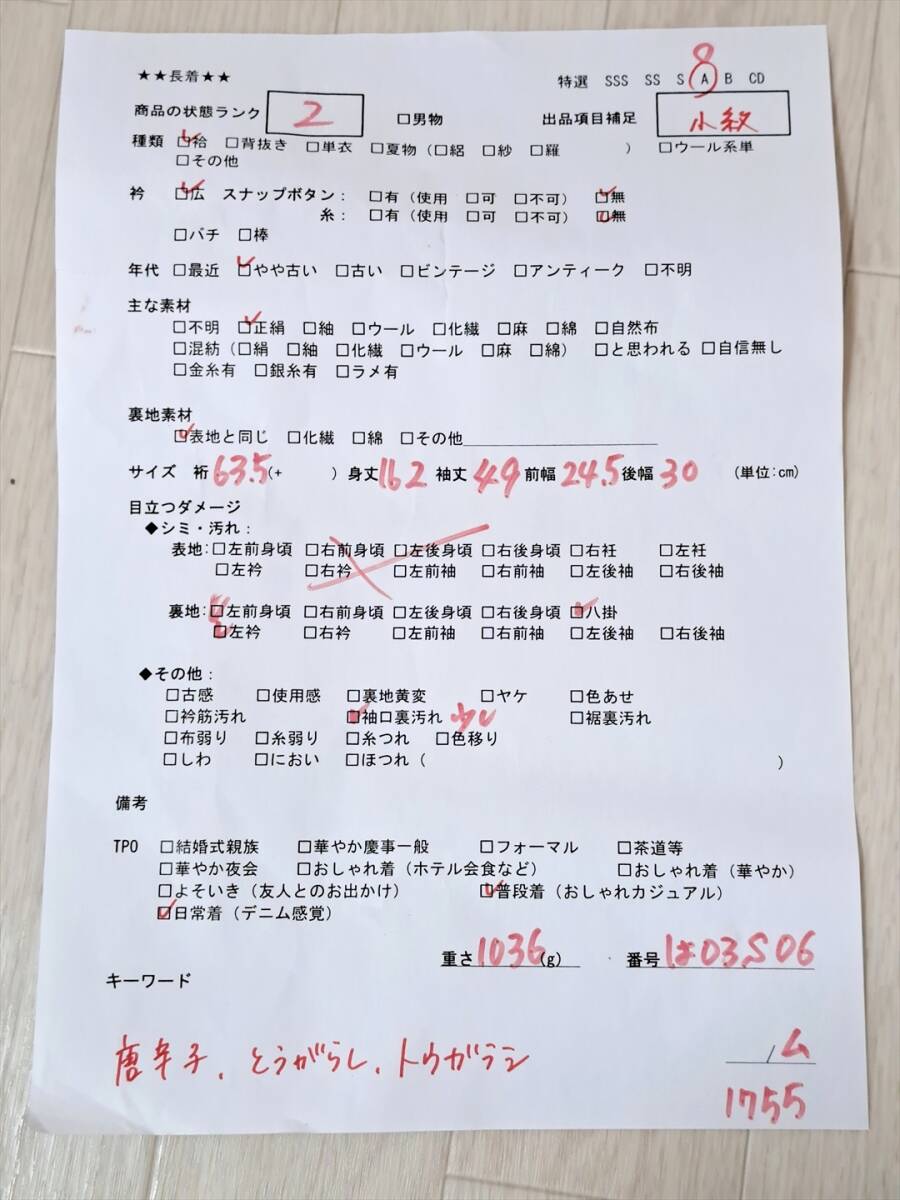 ★★長着★★
特選 SSS SS S A B CD
商品の状態ランク 2 □男物 出品項目補足 小紋
種類 □袷 □背抜き □単衣 □夏物（□絽 □紗 □羅 ） □ウール系単
□その他
衿 □広 スナップボタン： □有（使用 □可 □不可） □無
糸： □有（使用 □可 □不可） □無
□バチ □棒
年代 □最近 □やや古い □古い □ビンテージ □アンティーク □不明
主な素材
□不明 □正絹 □紬 □ウール □化繊 □麻 □綿 □自然布
□混紡（□絹 □紬 □化繊 □ウール □麻 □綿） □と思われる □自信無し
□金糸有 □銀糸有 □ラメ有
裏地素材
□表地と同じ □化繊 □綿 □その他
サイズ 裄 63.5 (+ ) 身丈 162 袖丈 49 前幅 24.5 後幅 30 (単位:cm)
目立つダメージ
◆シミ・汚れ：
表地：□左前身頃 □右前身頃 □左後身頃 □右後身頃 □右衽 □左衽
□左衿 □右衿 □左前袖 □右前袖 □左後袖 □右後袖
裏地：□左前身頃 □右前身頃 □左後身頃 □右後身頃 □八掛
□左衿 □右衿 □左前袖 □右前袖 □左後袖 □右後袖
◆その他：
□古感 □使用感 □裏地黄変 □ヤケ □色あせ
□衿筋汚れ □袖口裏汚れ 少し □裾裏汚れ
□布弱り □糸弱り □糸つれ □色移り
□しわ □におい □ほつれ（ ）
備考
TPO □結婚式親族 □華やか慶事一般 □フォーマル □茶道等
□華やか夜会 □おしゃれ着（ホテル会食など） □おしゃれ着（華やか）
□よそいき（友人とのお出かけ） □普段着（おしゃれカジュアル）
□日常着（デニム感覚）
重さ 1036 (g) 番号 は03S06
キーワード
唐辛子、とうがらし、トウガラシ
/ム
1755